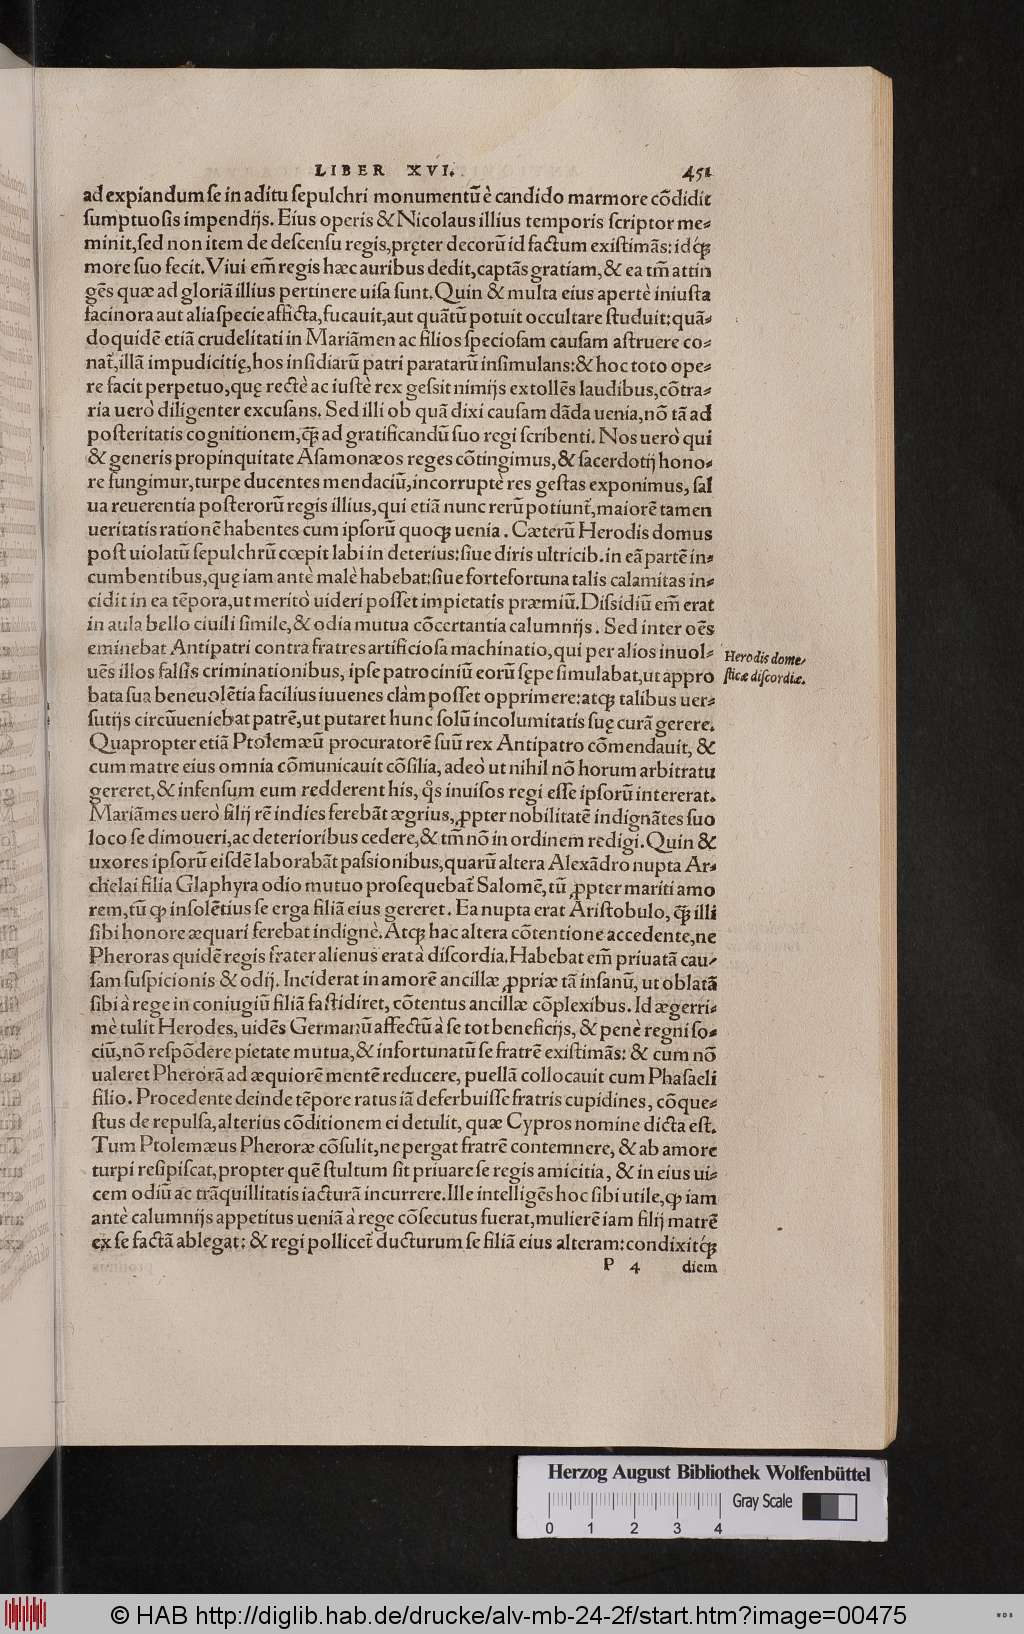 LIBER XVI. 451
ad expiandum se in aditu sepulchri monumentũ è candido marmore cõdidit
sumptuosis impendijs. Eius operis & Nicolaus illius temporis scriptor me-
minit, sed non item de descensu regis, pręter decorũ id factum existimãs: id qꝫ
more suo fecit. Viui em̃ regis hæc auribus dedit, captãs gratiam, & ea tm̃ attin
gẽs quæ ad gloriã illius pertinere uisa sunt. Quin & multa eius apertè iniusta
facinora aut alia specie afficta, fucauit, aut quãtũ potuit occultare studuit: quã-
doquidẽ etiã crudelitati in Mariãmen ac filios speciosam causam astruere co-
nat᷑, illã impudicitię, hos insidiarũ patri paratarũ insimulans: & hoc toto ope-
re facit perpetuo, quę rectè ac iustè rex gessit nimijs extollẽs laudibus, cõtra-
ria uerò diligenter excusans. Sed illi ob quã dixi causam dãda uenia, nõ tã ad
posteritatis cognitionem, ꝗ̃ ad gratificandũ suo regi scribenti. Nos uerò qui
& generis propinquitate Asamonæos reges cõtingimus, & sacerdotij hono-
re fungimur, turpe ducentes mendaciũ, incorruptè res gestas exponimus, sal
ua reuerentia posterorũ regis illius, qui etiã nunc rerũ potiunt᷑, maiorẽ tamen
ueritatis rationẽ habentes cum ipsorũ quoqꝫ uenia. Cæterũ Herodis domus
post uiolatũ sepulchrũ cœpit labi in deterius: siue diris ultricib. in eã partẽ in-
cumbentibus, quę iam antè malè habebat: siue forte fortuna talis calamitas in-
cidit in ea tẽpora, ut meritò uideri posset impietatis præmiũ. Dissidiũ em̃ erat
in aula bello ciuili simile, & odia mutua cõcertantia calumnijs. Sed inter oẽs
eminebat Antipatri contra fratres artificiosa machinatio, qui per alios inuol-
uẽs illos falsis criminationibus, ipse patrociniũ eorũ sępe simulabat, ut appro
bata sua beneuolẽtia facilius iuuenes clàm posset opprimere: atqꝫ talibus uer-
sutijs circũueniebat patrẽ, ut putaret hunc solũ incolumitatis suę curã gerere.
Quapropter etiã Ptolemæũ procuratorẽ suũ rex Antipatro cõmendauit, &
cum matre eius omnia cõmunicauit cõsilia, adeò ut nihil nõ horum arbitratu
gereret, & infensum eum redderent his, q̃s inuisos regi esse ipsorũ intererat.
Mariãmes uerò filij rẽ indies ferebãt ægrius, ꝓpter nobilitatẽ indignãtes suo
loco se dimoueri, ac deterioribus cedere, & tm̃ nõ in ordinem redigi. Quin &
uxores ipsorũ eisdẽ laborabãt passionibus, quarũ altera Alexãdro nupta Ar-
chelai filia Glaphyra odio mutuo prosequebat᷑ Salomẽ, tũ ꝓpter mariti amo
rem, tũ ꝙ insolẽtius se erga filiã eius gereret. Ea nupta erat Aristobulo, ꝗ̃ illi
sibi honore æquari ferebat indignè. Atqꝫ hac altera cõtentione accedente, ne
Pheroras quidẽ regis frater alienus erat à discordia. Habebat em̃ priuatã cau-
sam suspicionis & odij. Inciderat in amorẽ ancillæ ꝓpriæ tã insanũ, ut oblatã
sibi à rege in coniugiũ filiã fastidiret, cõtentus ancillæ cõplexibus. Id ægerri-
mè tulit Herodes, uidẽs Germanũ affectũ à se tot beneficijs, & penè regni so-
ciũ, nõ respõdere pietate mutua, & infortunatũ se fratrẽ existimãs: & cum nõ
ualeret Pherorã ad æquiorẽ mentẽ reducere, puellã collocauit cum Phasaeli
filio. Procedente deinde tẽpore ratus iã deferbuisse fratris cupidines, cõque-
stus de repulsa, alterius cõditionem ei detulit, quæ Cypros nomine dicta est.
Tum Ptolemæus Pheroræ cõsulit, ne pergat fratrẽ contemnere, & ab amore
turpi resipiscat, propter quẽ stultum sit priuare se regis amicitia, & in eius ui-
cem odiũ ac trãquillitatis iacturã incurrere. Ille intelligẽs hoc sibi utile, ꝙ iam
antè calumnijs appetitus ueniã à rege cõsecutus fuerat, mulierẽ iam filij matrẽ
ex se factã ablegat: & regi pollicet᷑ ducturum se filiã eius alteram: condixitqꝫ
P 4 diem
Herodis dome-
sticæ discordiæ.
Herzog August Bibliothek Wolfenbüttel
Gray Scale
0 1 2 3 4
© HAB http://diglib.hab.de/drucke/alv-mb-24-2f/start.htm?image=00475